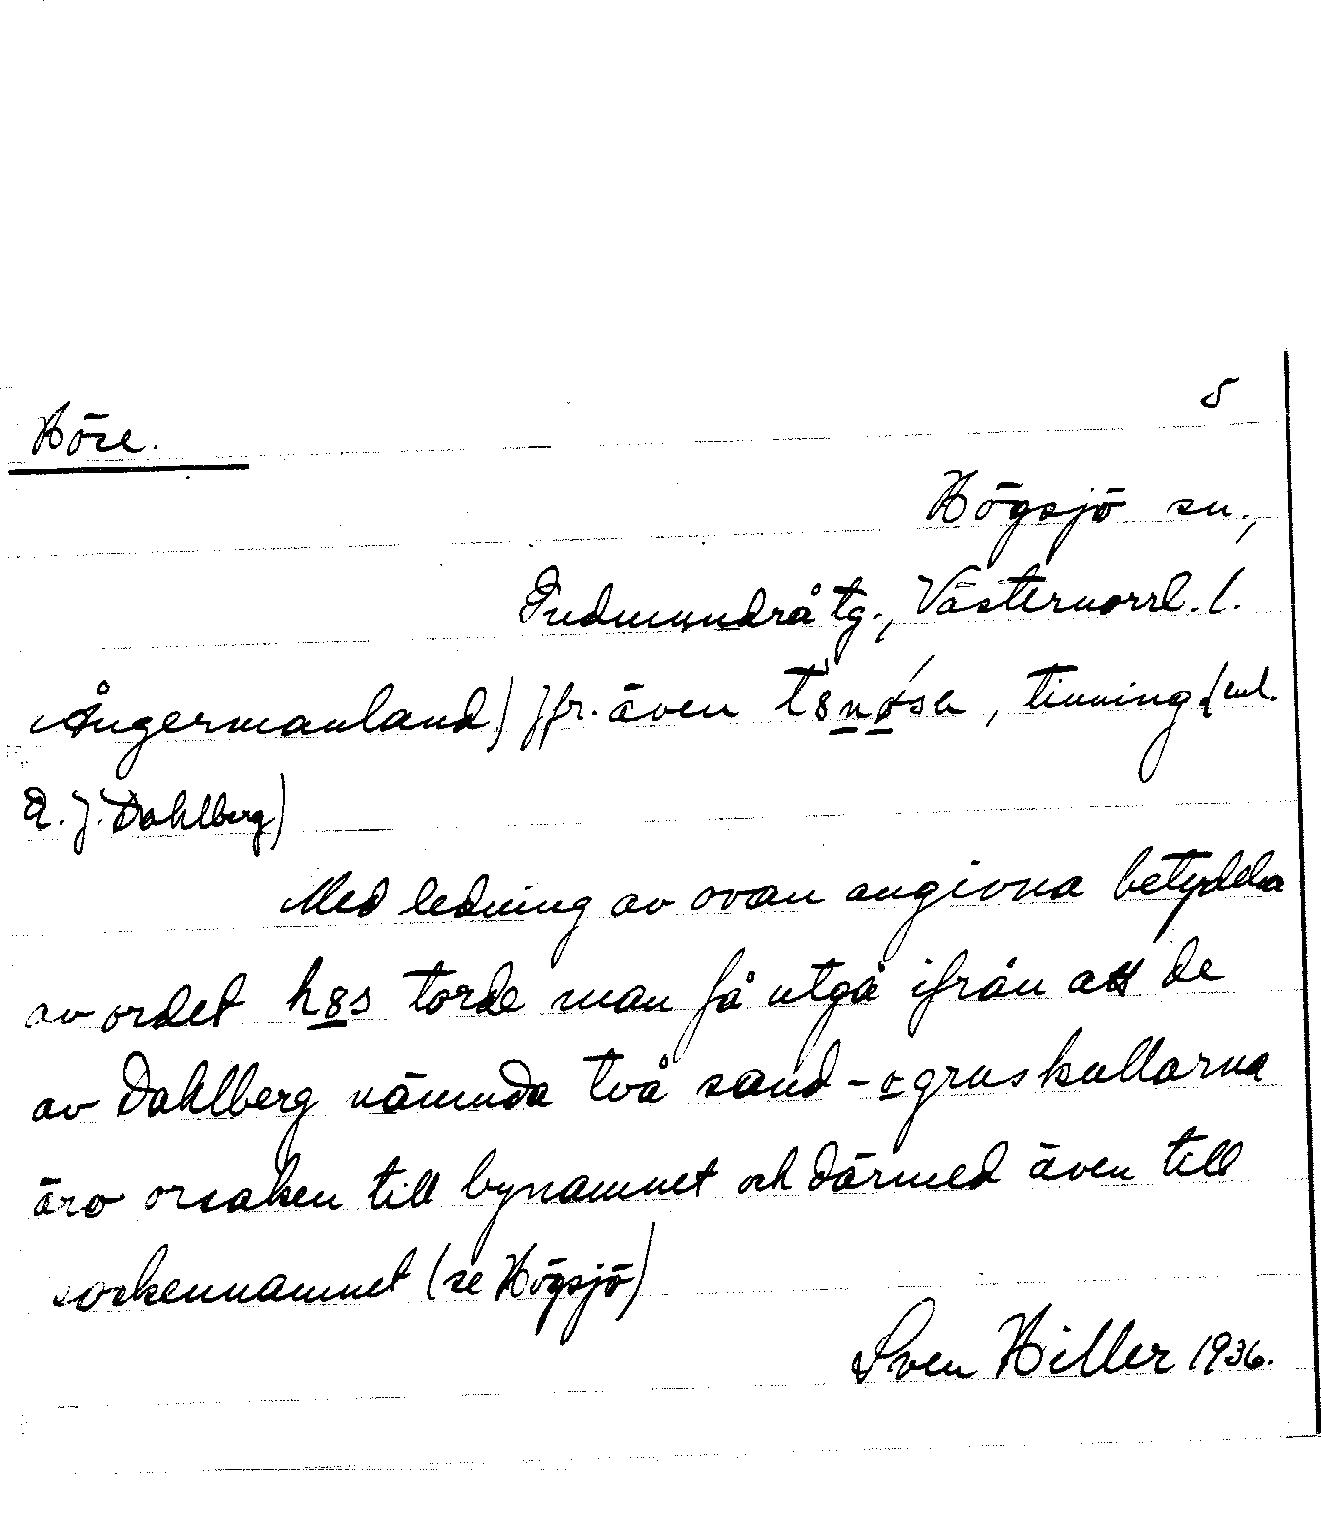 5
Höse.
Högsjö sn.,
Gudmundrå tg., Västernorrl. l.
Ångermanland) Jfr. även , tinning (enl.
A. J. Dahlberg)
Med ledning av ovan angivna betydelse
av ordet h8s torde man få utgå ifrån att de
av Dahlberg nämnda två sand- o grus kullarna
äro orsaken till bynamnet och därmed även till
sockennamnet (se Högsjö)
Sven Hiller 1936.